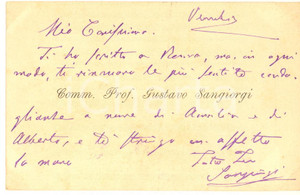 Venerdì
Mio Carissimo.
Ti ho scritto a Roma, ma, in ogni
modo, ti rinnovo le più sentite condo-
Comm. Prof. Gustavo Sangiorgi
glianze a nome di Amelia e di
Alberto, e ti stringo con affetto
la mano
Tutto Tuo
Sangiorgi